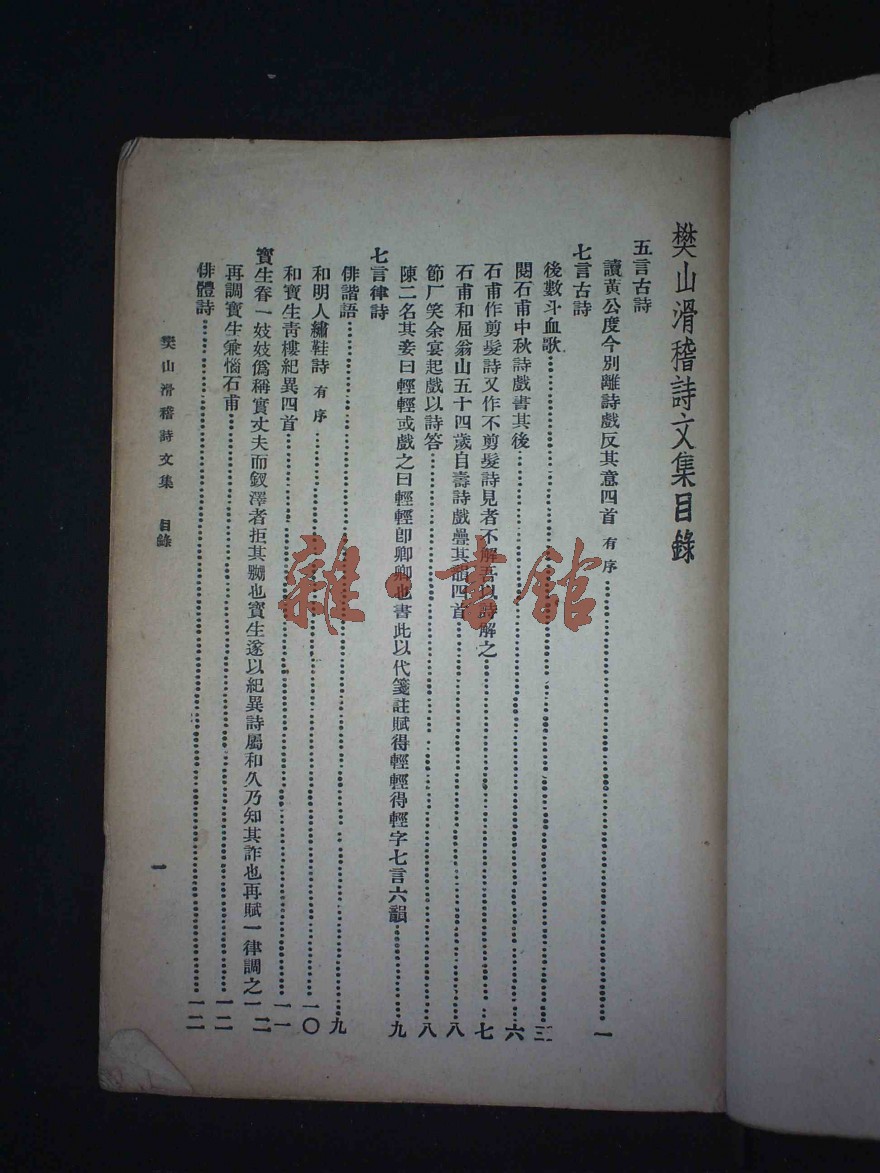 樊山滑稽詩文集目錄
五言古詩
讀黃公度今別離詩戲反其意四首 有序 一
七言古詩
後數斗血歌 三
閱石甫中秋詩戲書其後 六
石甫作剪髮詩又作不剪髮詩見者不解吾以詩解之 七
石甫和屈翁山五十四歲自壽詩戲疊其韻四首 八
節厂笑余宴起戲以詩答 八
陳二名其妾曰輕輕或戲之曰輕輕卽卿卿也書此以代箋註賦得輕輕得輕字七言六韻 九
七言律詩
俳諧語 九
和明人繡鞋詩 有序 一〇
和寶生靑樓紀異四首 一一
寶生眷一妓妓僞稱實丈夫而釵澤者拒其嬲也寶生遂以紀異詩屬和久乃知其詐也再賦一律調之 一二
再調寶生兼惱石甫 一二
俳體詩 一二
樊山滑稽詩文集 目錄
一
雜·書館